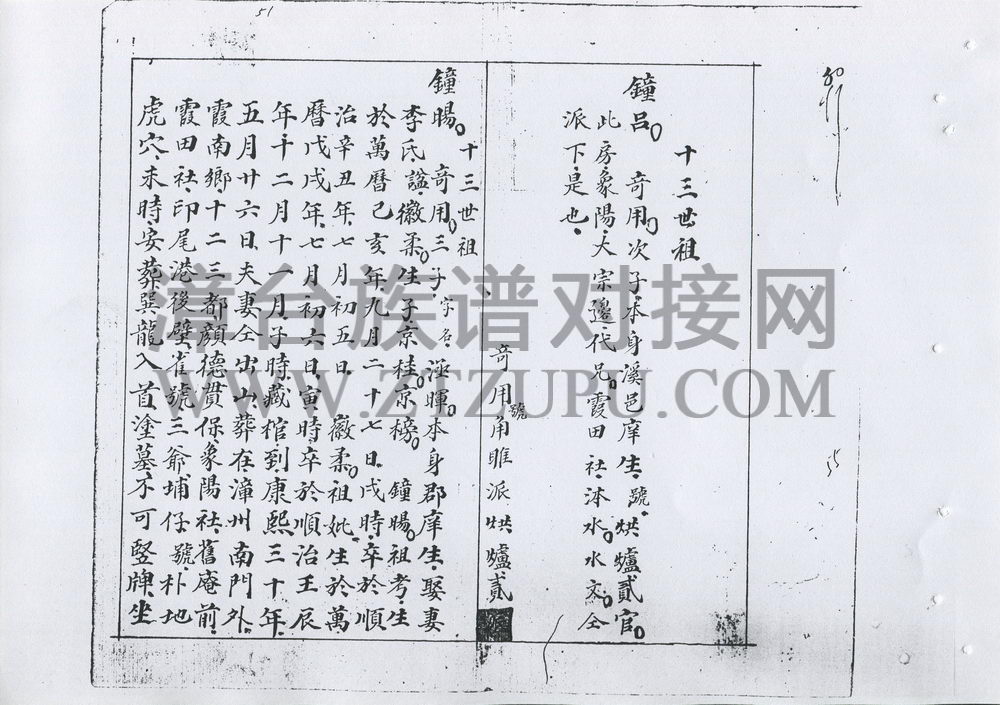 51
十三世祖
鐘呂。奇用。次子、本身溪邑庠生、號、烘爐貳官。
此房、象陽、大宗邊、代兄、霞田社、沐水。水交。仝
派下、是也、
奇用號角睢派烘爐貳
十三世祖
鐘暘。奇用。三子、字名、滋暉。本身郡庠生、娶妻
李氏謚、徽柔。生子京桂。京榜。鐘暘。祖考、生
於萬曆己亥年、九月二十七日、戌時、卒於順
治辛丑年、七月初五日、徽柔。祖妣、生於萬
曆戊戌年、七月初六日、寅時、卒於順治壬辰
年十二月十一月、子時、藏棺到、康熙三十年、
五月廿六日、夫妻仝出山葬在漳州南門外、
霞南鄉、十二三都、顏德貫保、象陽社、舊庵前、
霞田社、印尾港後壁、崔號三爺埔仔、號朴地
虎穴、未時、安葬、巽龍入首、塗墓、不可竪牌、坐
漳台族谱对接网
WWW.ZTZUPU.COM
55